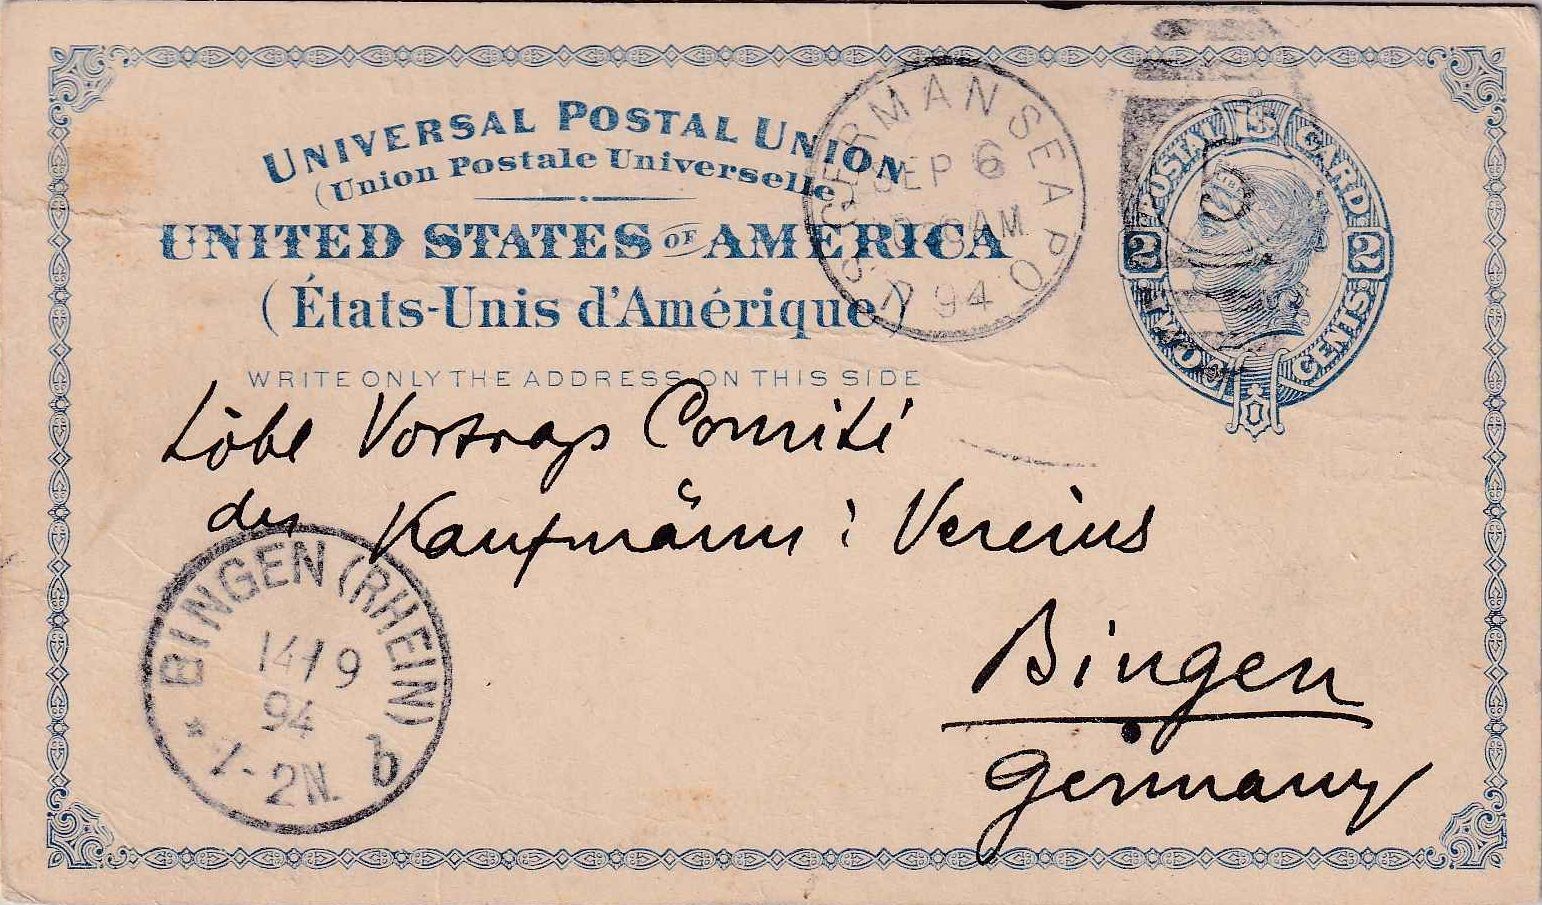 UNIVERSAL POSTAL UNION
(Union Postale Universelle)
UNITED STATES OF AMERICA
(États-Unis d'Amérique)
WRITE ONLY THE ADDRESS ON THIS SIDE
U.S. GERMAN SEA P.O.
SEP 6
AM
N 94
POSTAL CARD
U S
2 2
TWO CENTS
Löbl Vortrags Comité
des Kaufmänn: Vereins
Bingen
Germany
BINGEN (RHEIN)
14/9
94
* 1-2N. b